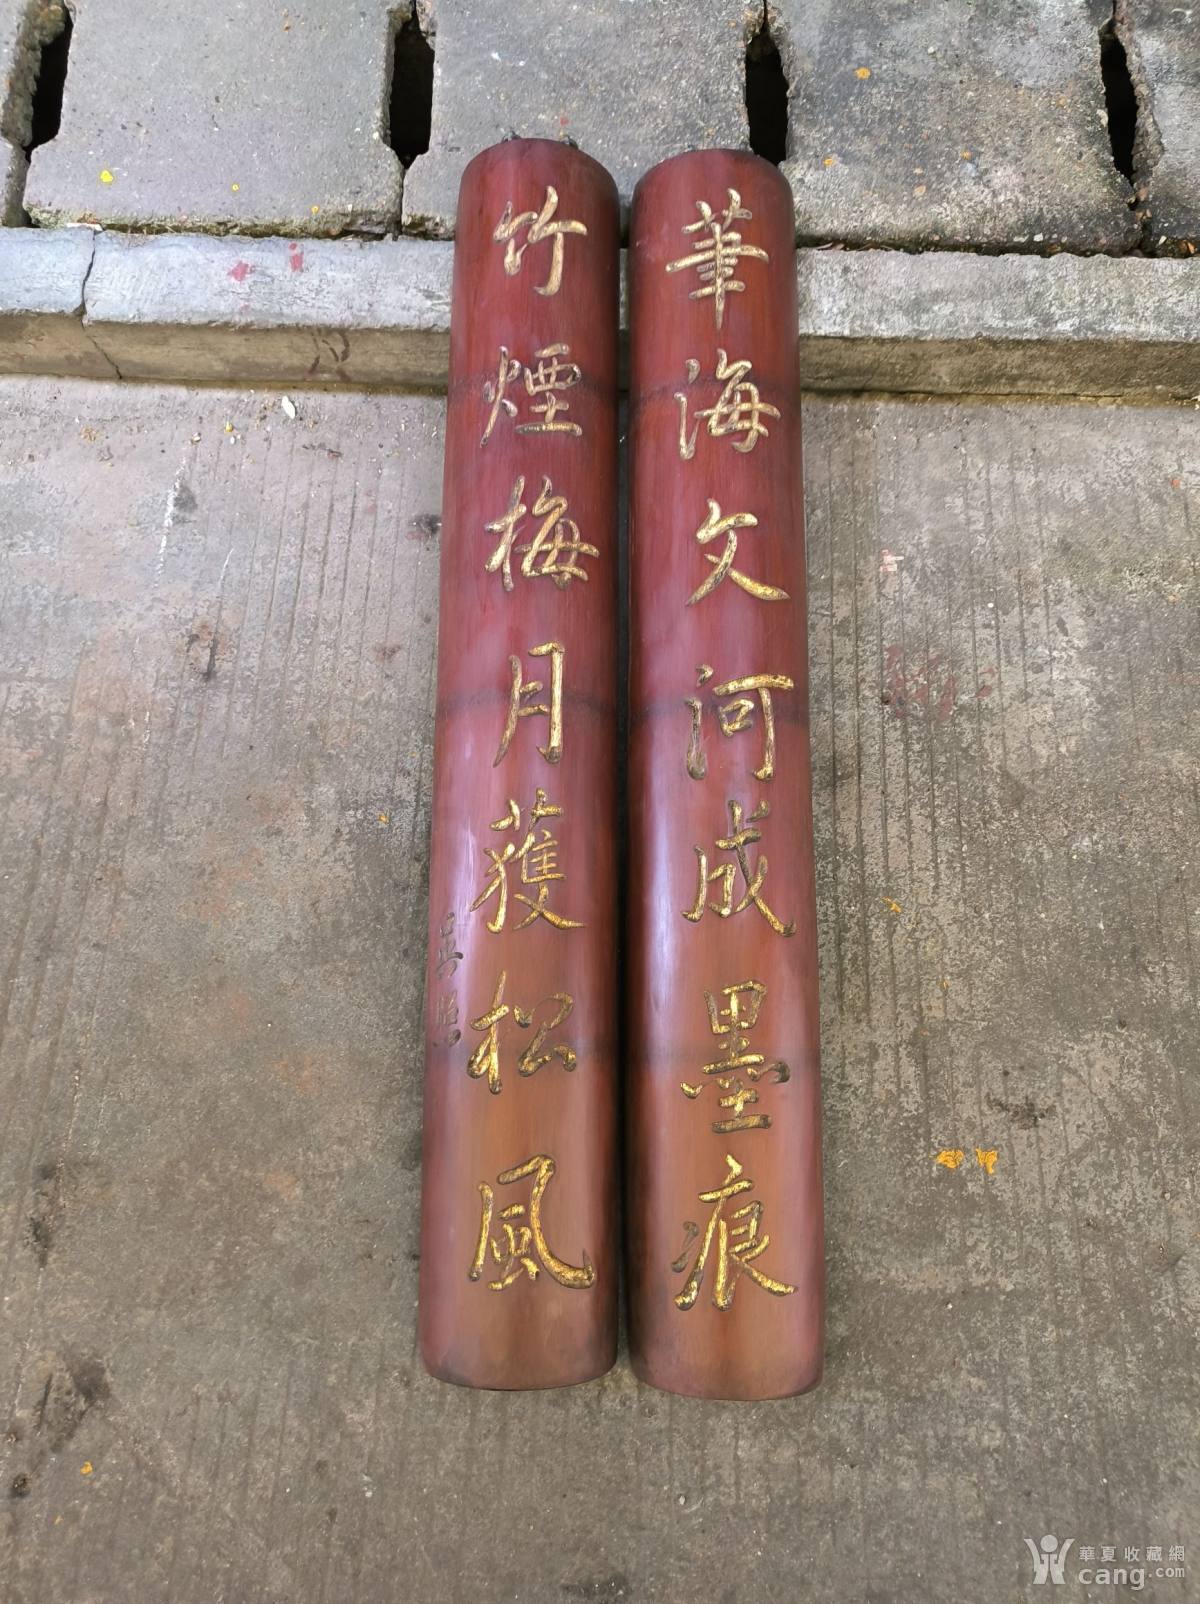 筆海文河成墨痕
竹煙梅月獲松風
華夏收藏網
cang.com